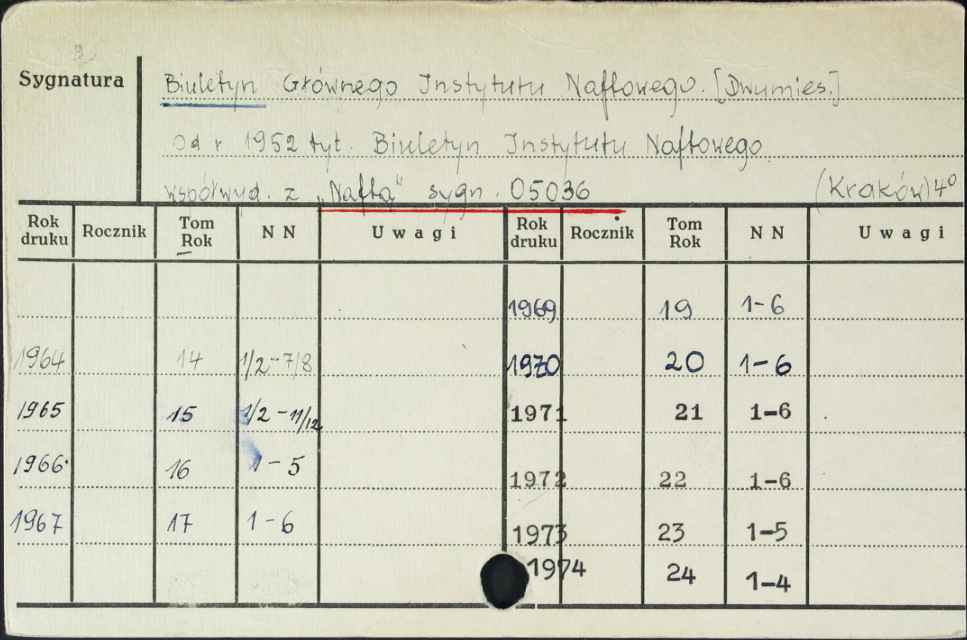 Sygnatura
Biuletyn Głównego Instytutu Naftowego. [Dwumies.]
Od r 1952 tyt. Biuletyn Instytutu Naftowego
współwyd. z „Nafta" sygn. 05036 (Kraków) 4°
Rok druku Rocznik Tom Rok NN Uwagi Rok druku Rocznik Tom Rok NN Uwagi
1969 19 1-6
1964 14 1/2-7/8 1970 20 1-6
1965 15 1/2-11/12 1971 21 1-6
1966 16 1-5 1972 22 1-6
1967 17 1-6 1973 23 1-5
1974 24 1-4